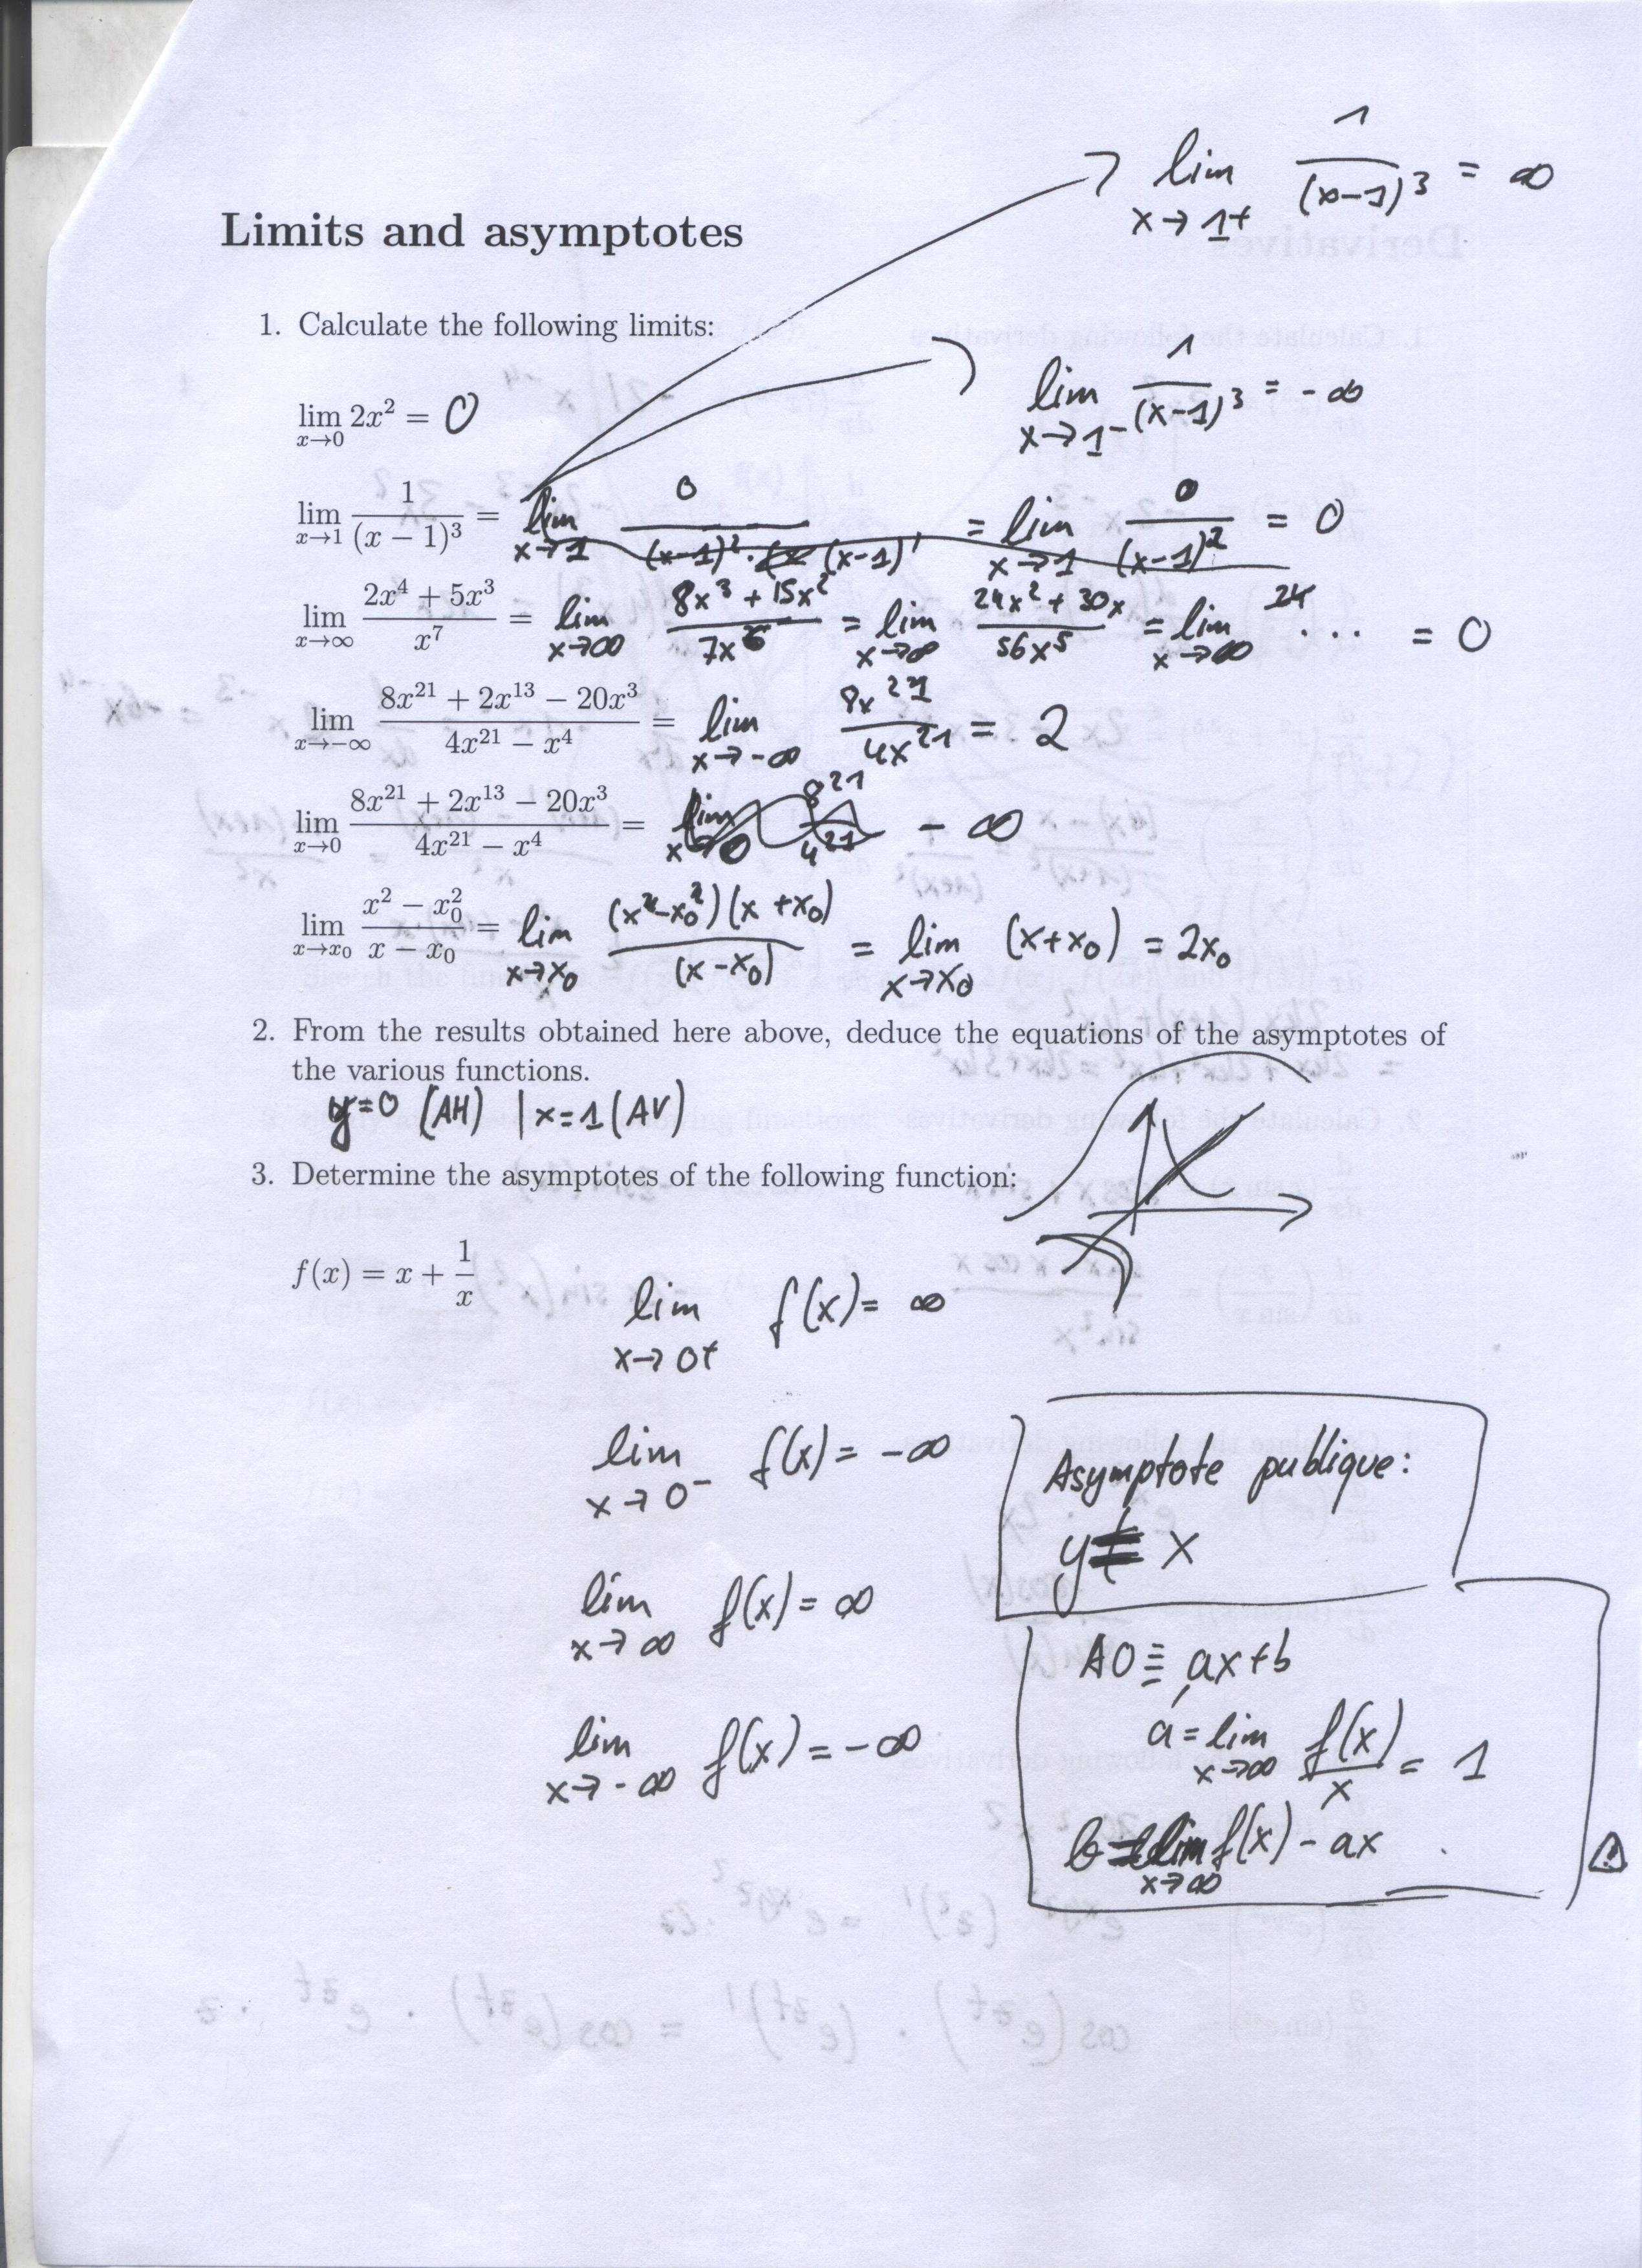 lim x→1+ 1/(x-1)³ = ∞
Limits and asymptotes
1. Calculate the following limits:
lim x→1- 1/(x-1)³ = -∞
lim x→0 2x² = 0
lim x→1 1/(x − 1)³ = lim x→1 0/((x-1)²·(x-1)') = lim x→1 0/(x-1)² = 0
lim x→∞ (2x⁴ + 5x³)/x⁷ = lim x→∞ (8x³ + 15x²)/7x⁶ = lim x→∞ (24x² + 30x)/56x⁵ = lim x→∞ 24 ... = 0
lim x→−∞ (8x²¹ + 2x¹³ − 20x³)/(4x²¹ − x⁴) = lim x→-∞ 8x²¹/4x²¹ = 2
lim x→0 (8x²¹ + 2x¹³ − 20x³)/(4x²¹ − x⁴) = lim x→0 8²¹/4²¹ - ∞
lim x→x₀ (x² − x₀²)/(x − x₀) = lim x→x₀ (x²-x₀²)(x+x₀)/(x-x₀) = lim x→x₀ (x+x₀) = 2x₀
2. From the results obtained here above, deduce the equations of the asymptotes of
the various functions.
y=0 (AH) | x=1 (AV)
3. Determine the asymptotes of the following function:
f(x) = x + 1/x
lim x→0+ f(x) = ∞
lim x→0- f(x) = -∞
Asymptote publique:
y = x
lim x→∞ f(x) = ∞
AO ≡ ax+b
a = lim x→∞ f(x)/x = 1
lim x→-∞ f(x) = -∞
b = lim x→∞ f(x) - ax
!